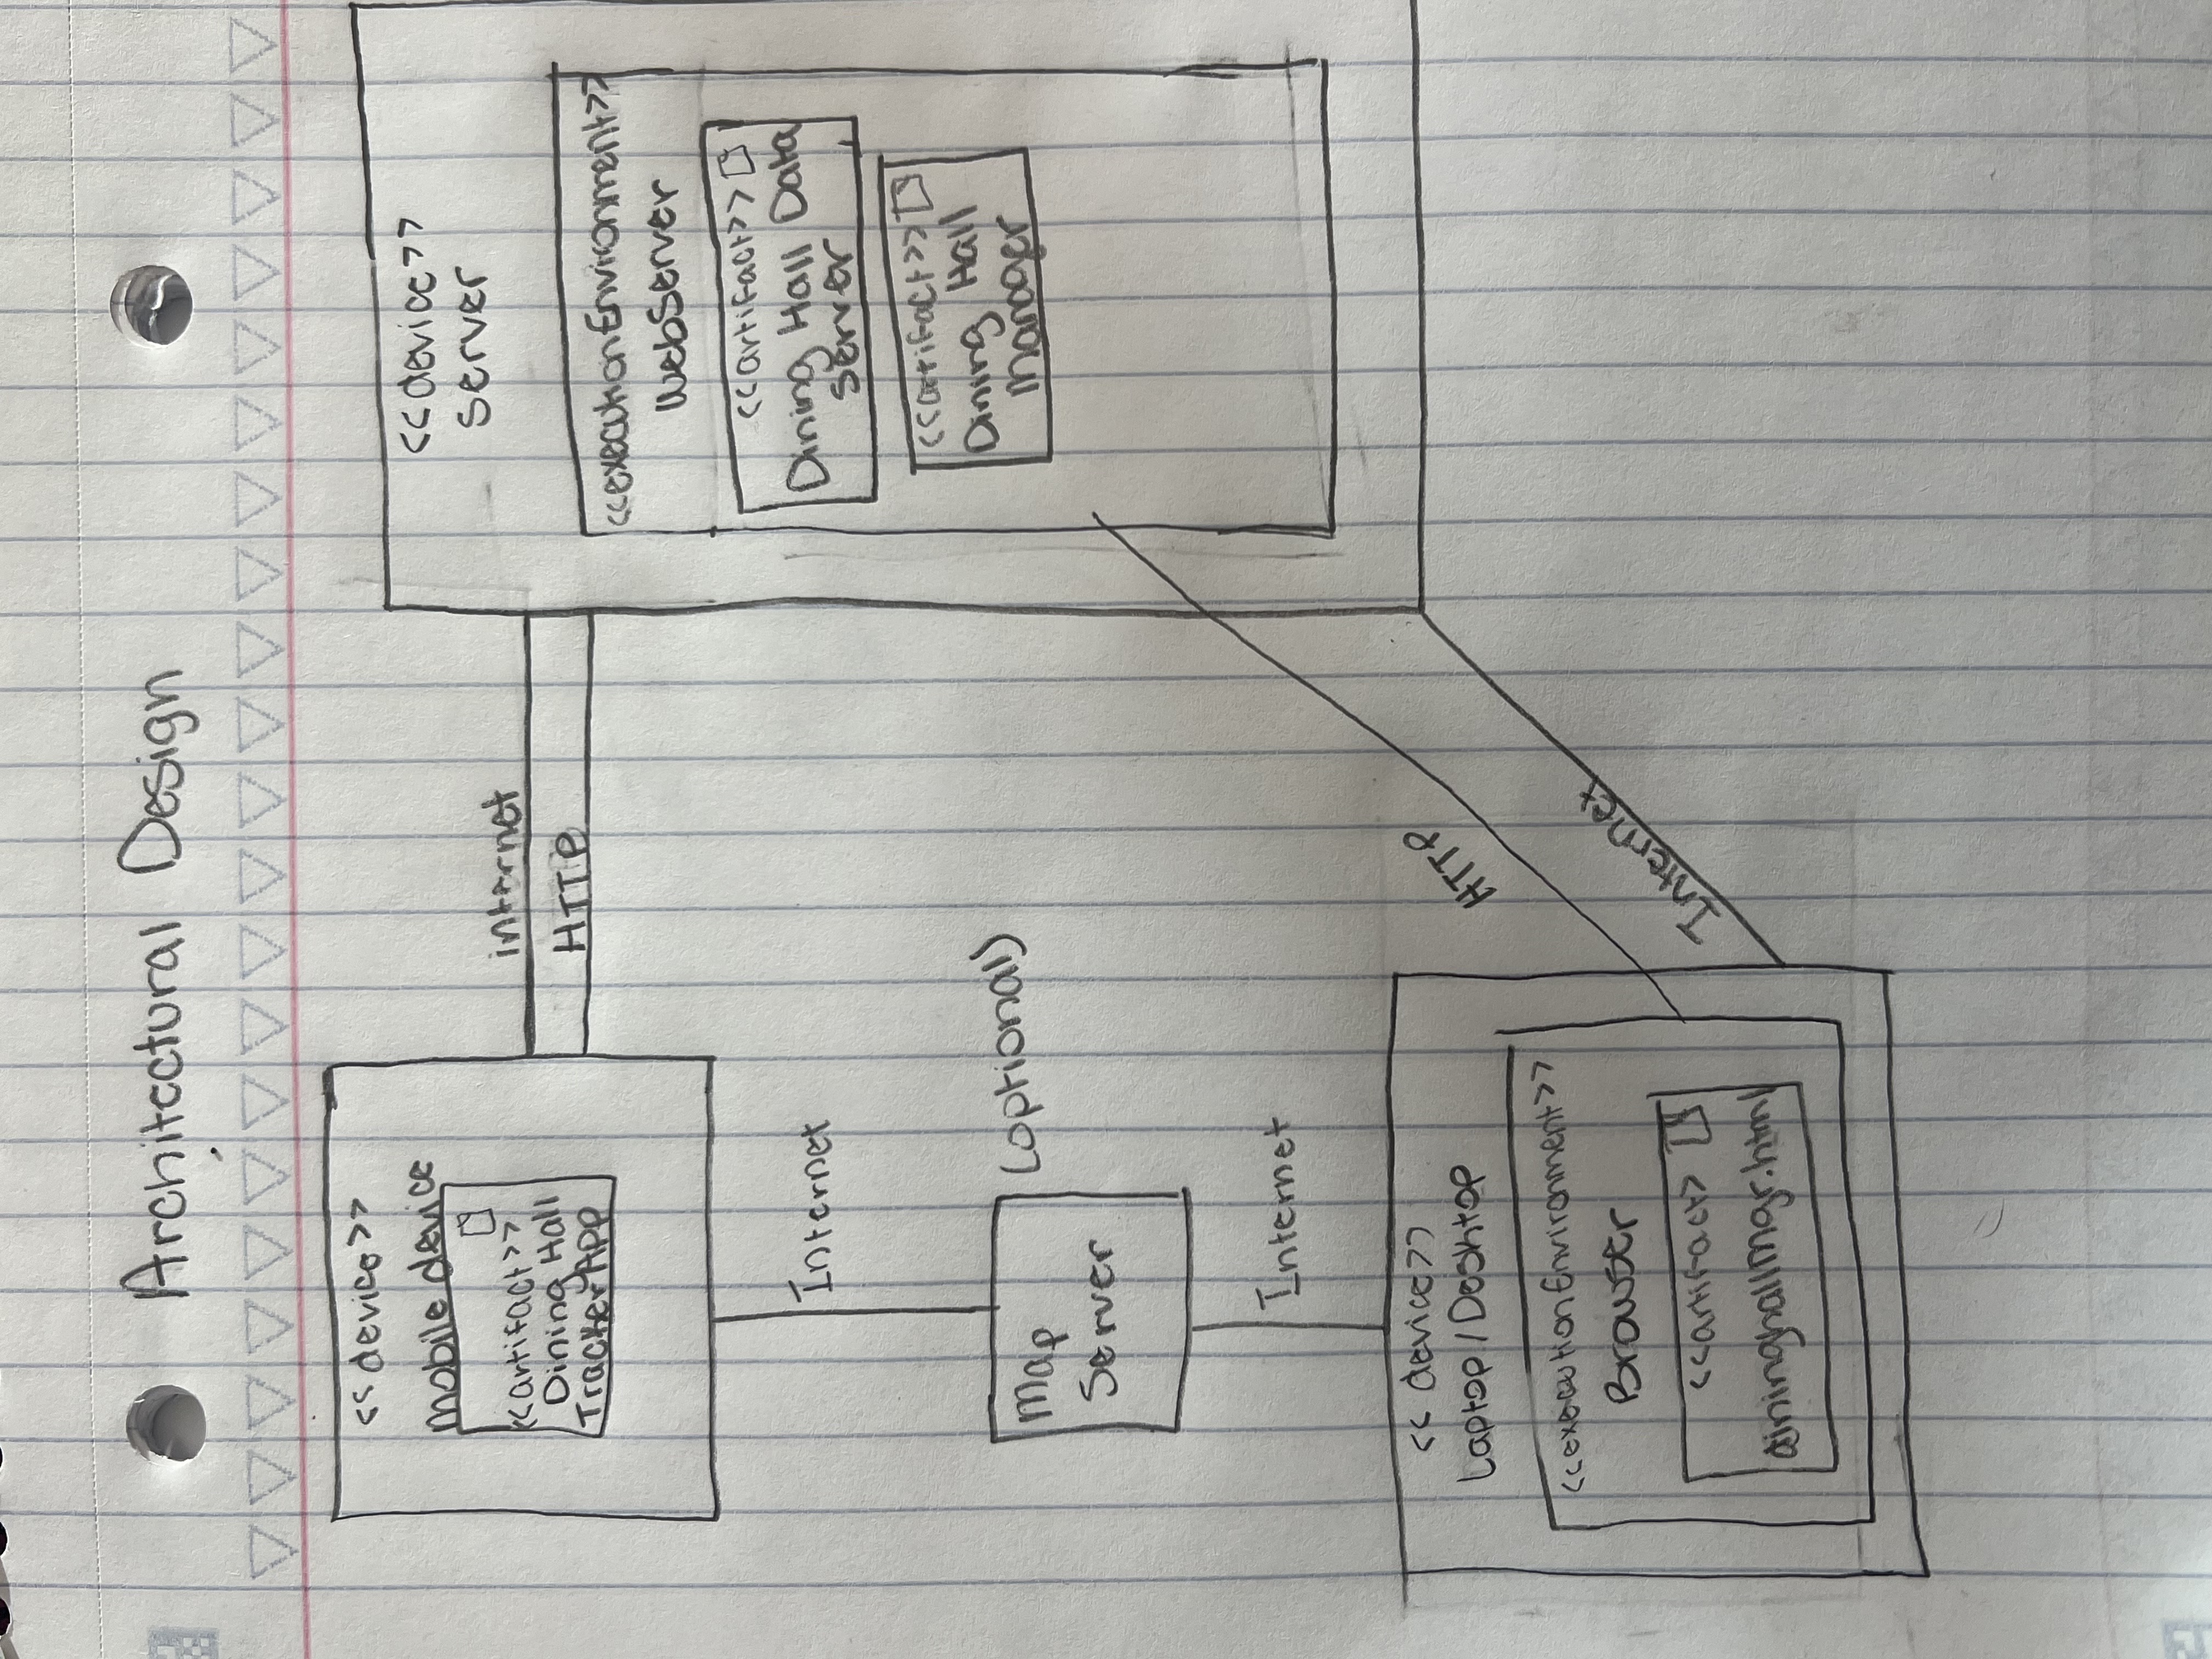 Architectural Design
<<device>>
mobile device
<<artifact>>
Dining Hall
Tracker App
internet
HTTP
<<device>>
Server
<<executionEnvironment>>
WebServer
<<artifact>>
Dining Hall Data
Server
<<artifact>>
Dining Hall
Manager
Internet
Map
Server
(optional)
Internet
<< device>>
Laptop/Desktop
<<executionEnvironment>>
Browser
<<artifact>
dininghallMgr.html
HTTP
Internet